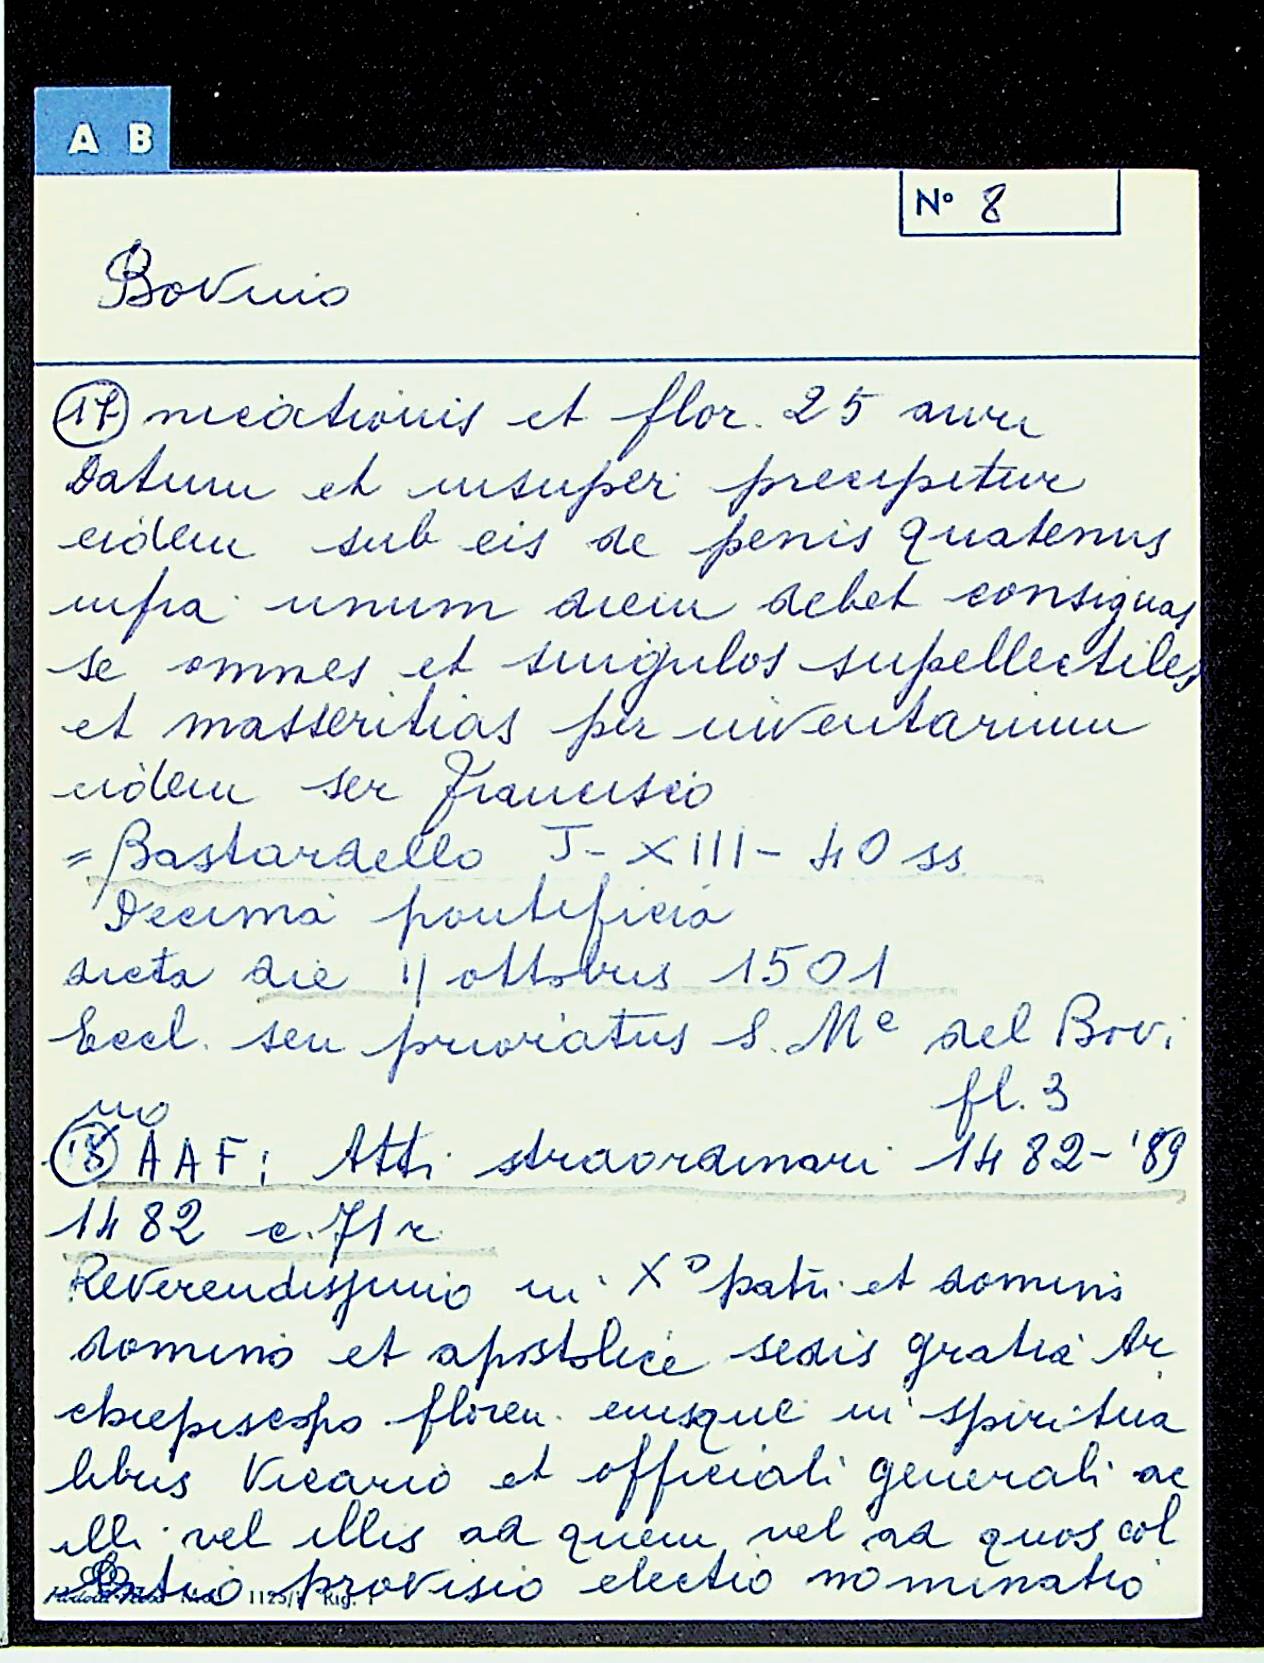 A B
Nº 8
Bovino
17 nicationis et flor. 25 auri
Datum et insuper precipitur
eidem sub eis de penis quatenus
infra unum diem debet consignas
se omnes et singulos supellectiles
et masseritias per inventarium
eidem ser Francisco
= Bastardello J-XIII-40 ss
Decima pontificia
dicta die 11 ottobris 1501
Eccl. seu prioriatus S. Mᵉ del Bovi
no fl. 3
18 AAF: Atti straordinari 1482-'89
1482 c. 71 r
Reverendissimo in Xº patri et dominis
domino et apostolice sedis gratia Ar
chiepiscopo floren. eiusque in spiritua
libus Vicario et officiali generali ac
illi vel illis ad quem vel ad quos col
latio provisio electio nominatio
1125/ Rig. 1